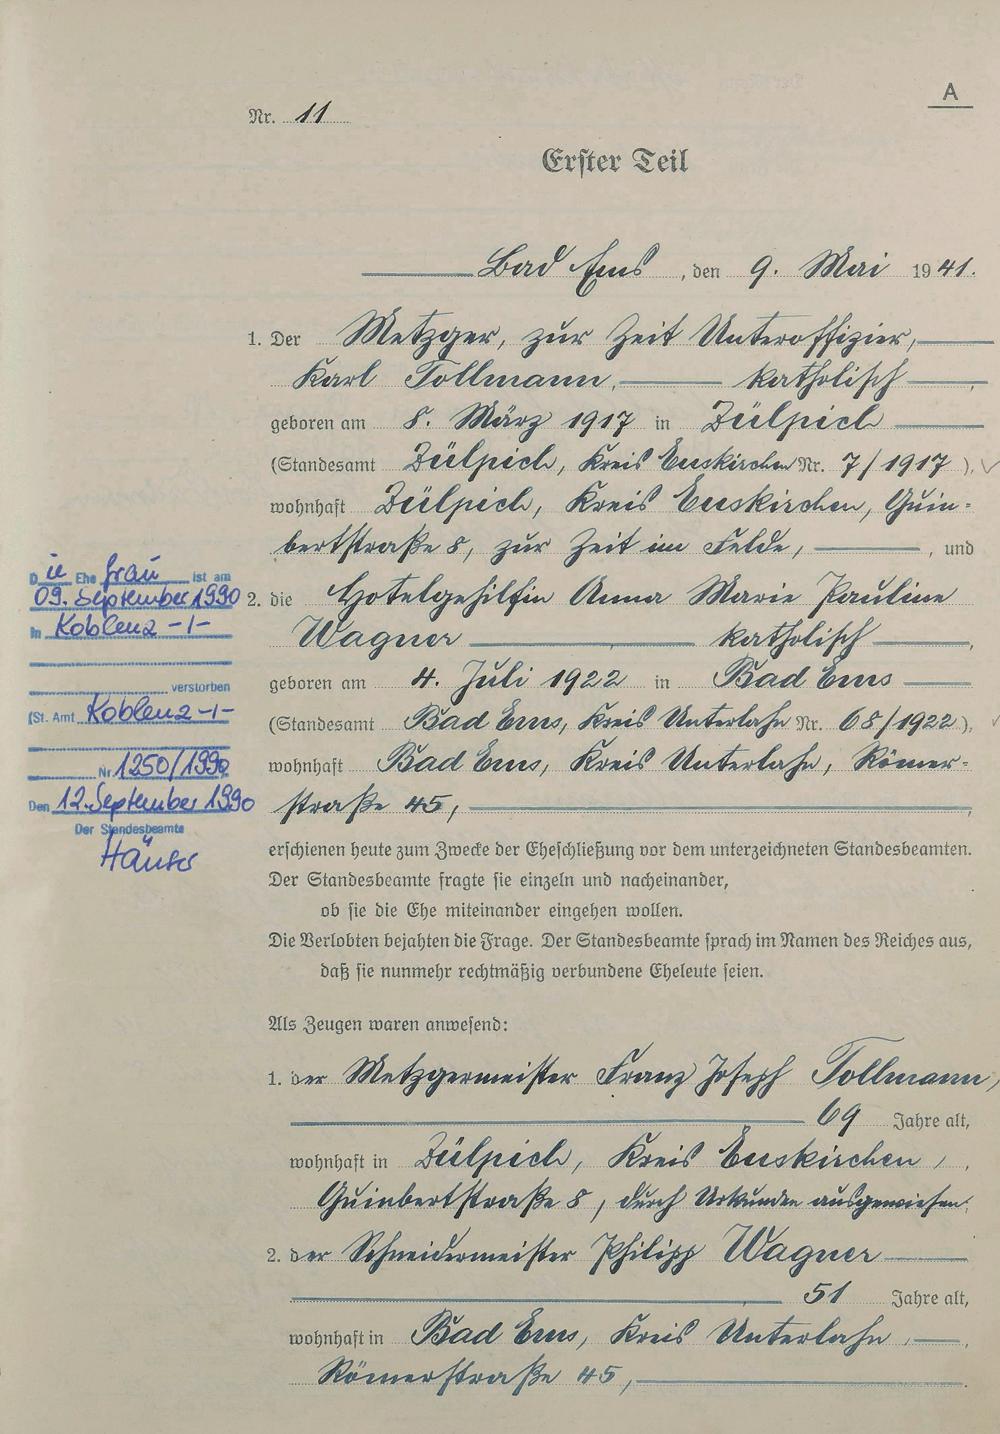 A
Nr. 11
Erster Teil
Bad Ems, den 9. Mai 1941.
1. Der Metzger, zur Zeit Unteroffizier,
Karl Tollmann, katholisch,
geboren am 8. März 1917 in Zülpich
(Standesamt Zülpich, Kreis Euskirchen Nr. 7/1917),
wohnhaft Zülpich, Kreis Euskirchen, Quin-
bertstraße 8, zur Zeit im Felde, , und
2. die Hotelgehilfin Anna Marie Pauline
Wagner katholisch,
geboren am 4. Juli 1922 in Bad Ems
(Standesamt Bad Ems, Kreis Unterlahn Nr. 68/1922),
wohnhaft Bad Ems, Kreis Unterlahn, Römer-
straße 45,
erschienen heute zum Zwecke der Eheschließung vor dem unterzeichneten Standesbeamten.
Der Standesbeamte fragte sie einzeln und nacheinander,
ob sie die Ehe miteinander eingehen wollen.
Die Verlobten bejahten die Frage. Der Standesbeamte sprach im Namen des Reiches aus,
daß sie nunmehr rechtmäßig verbundene Eheleute seien.
Als Zeugen waren anwesend:
1. der Metzgermeister Franz Joseph Tollmann,
69 Jahre alt,
wohnhaft in Zülpich, Kreis Euskirchen,
Quinbertstraße 8, durch Urkunden ausgewiesen.
2. der Schneidermeister Philipp Wagner
51 Jahre alt,
wohnhaft in Bad Ems, Kreis Unterlahn,
Römerstraße 45,
Die Ehefrau ist am
09. September 1990
in Koblenz -1-
verstorben
(St. Amt Koblenz -1-
Nr 1250/1990
Den 12. September 1990
Der Standesbeamte